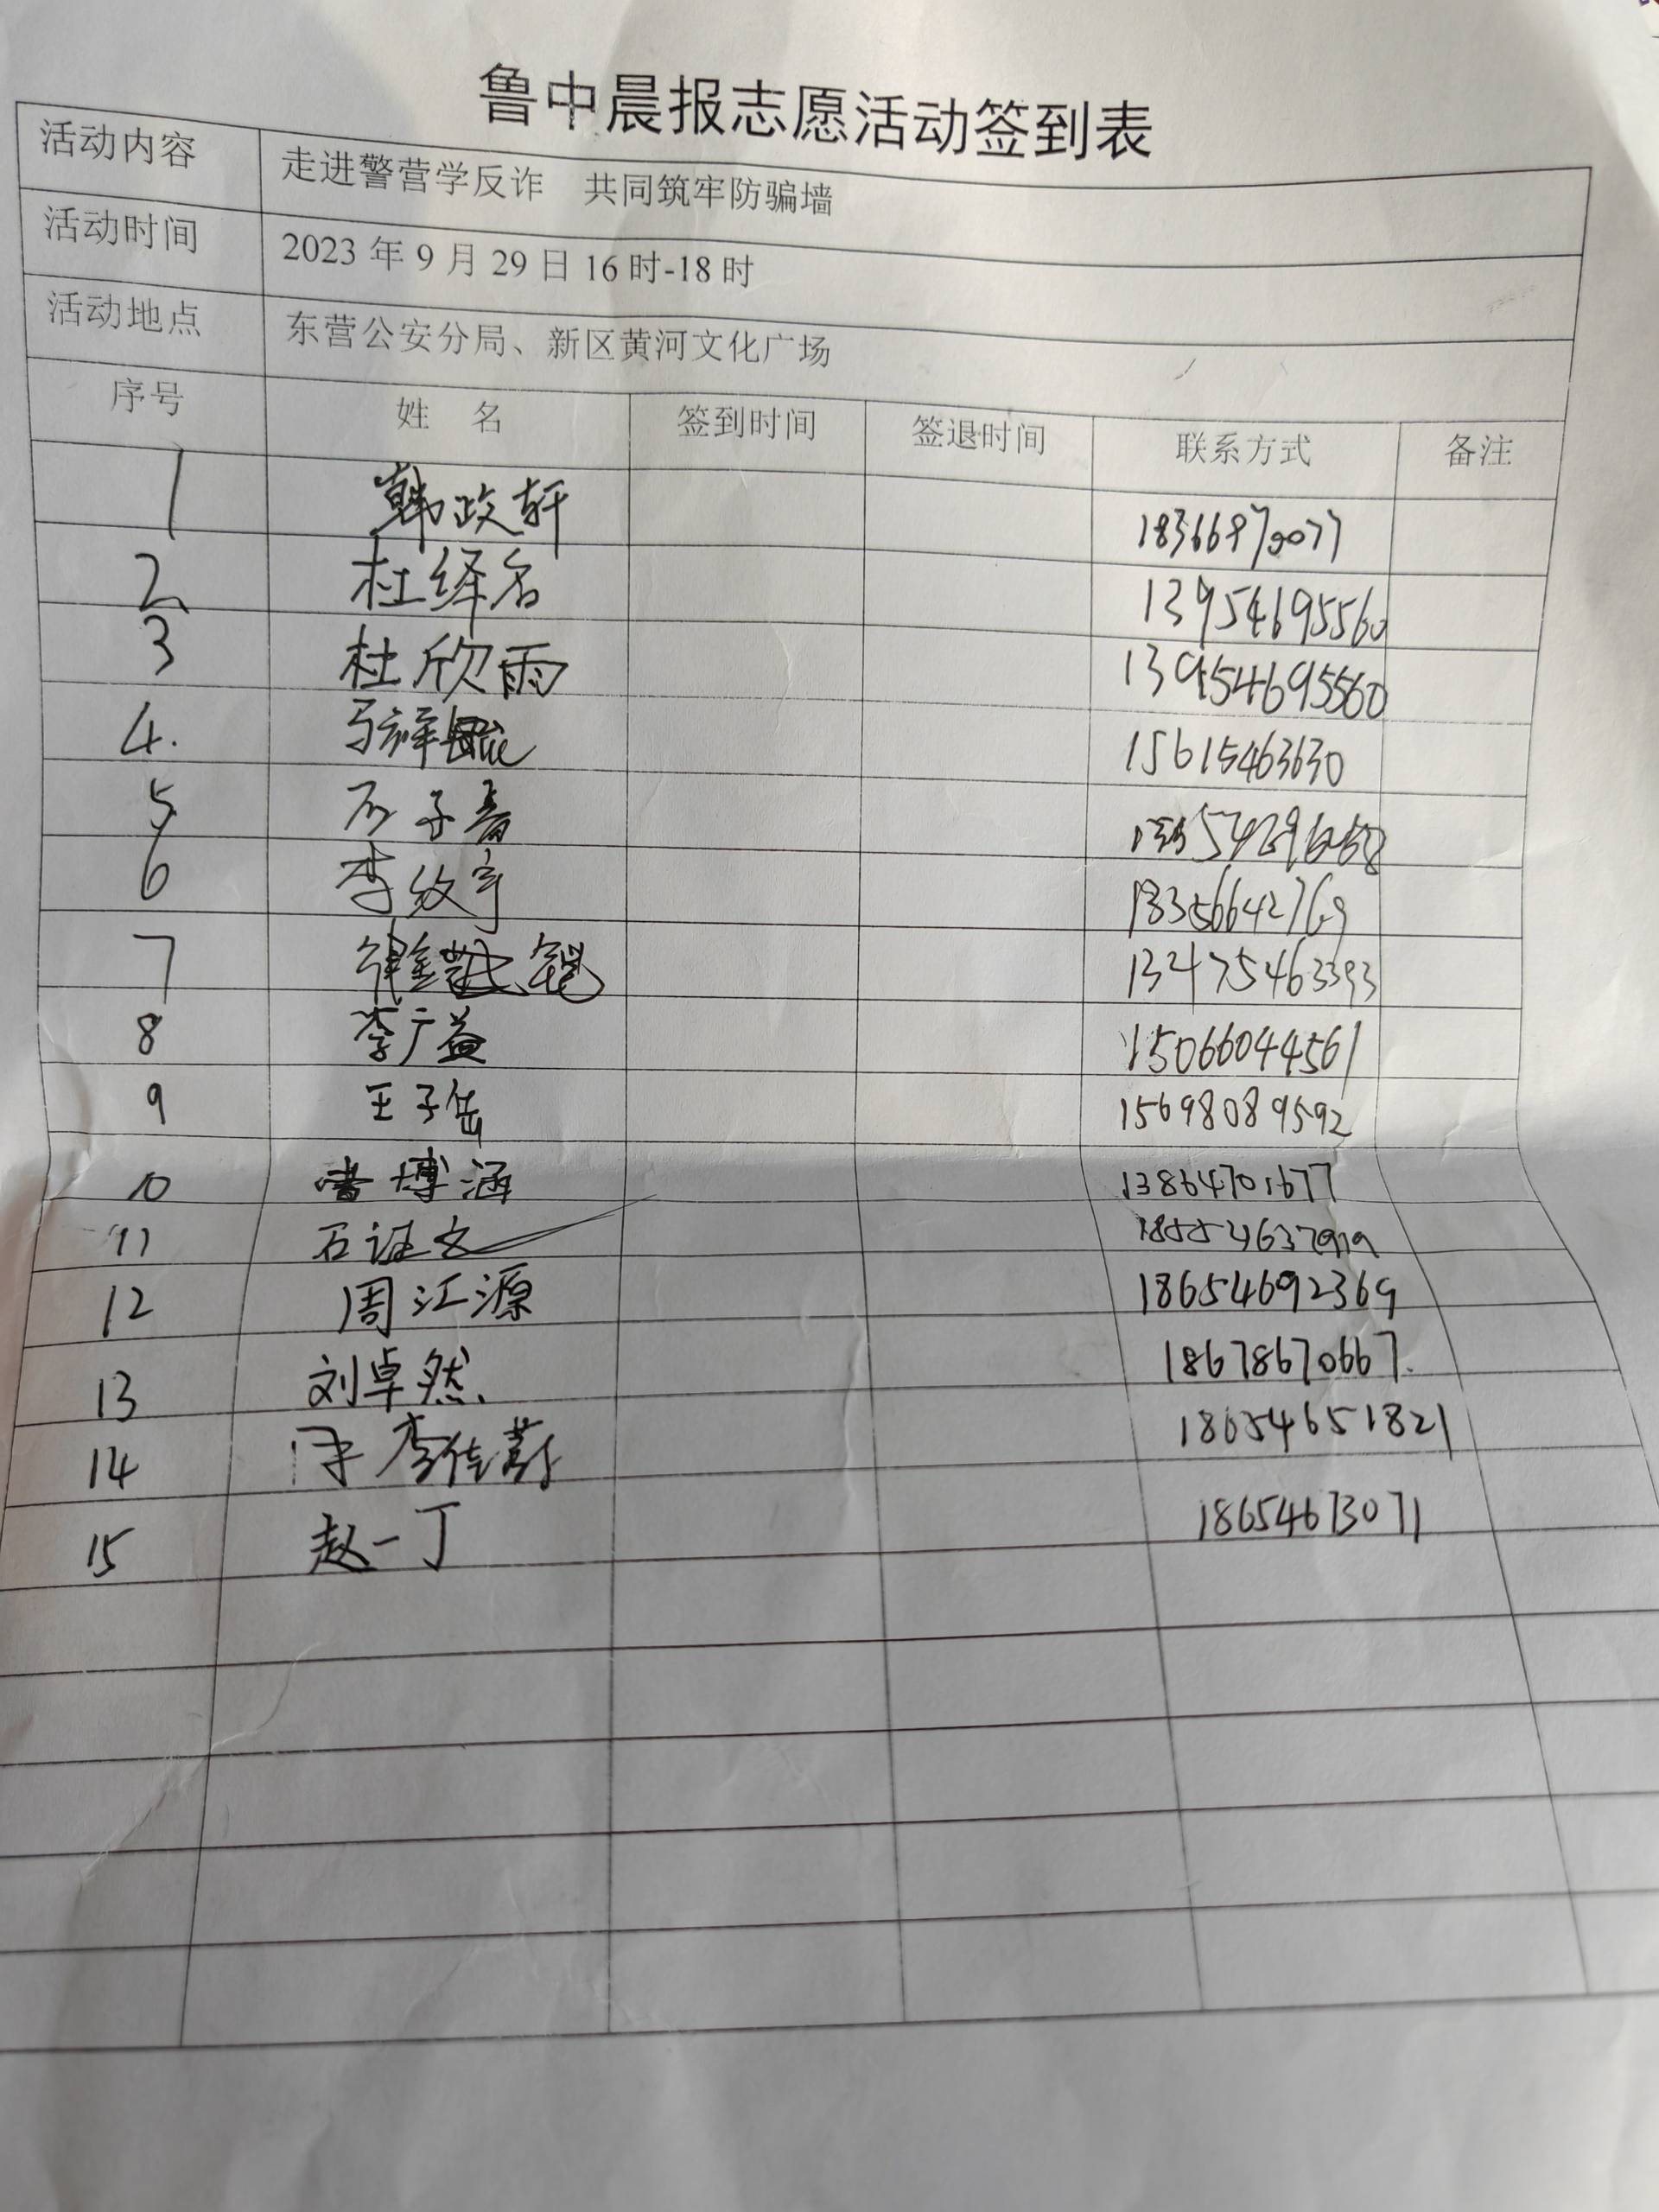 鲁中晨报志愿活动签到表
活动内容 走进警营学反诈 共同筑牢防骗墙
活动时间 2023 年 9 月 29 日 16 时-18 时
活动地点 东营公安分局、新区黄河文化广场
序号 姓 名 签到时间 签退时间 联系方式 备注
1 韩政轩
2 杜绎名 13954695560
3 杜欣雨 13954695560
4. 15615463630
5 子
6 李纹宇
7 13475463393
8 李广益 15066044561
9 王子岳 15698089592
10 博涵 13864701677
11 石证文
12 周江源 18654692369
13 刘卓然 18678670667.
14 李佳蔚 18654651821
15 赵一丁 18654673071